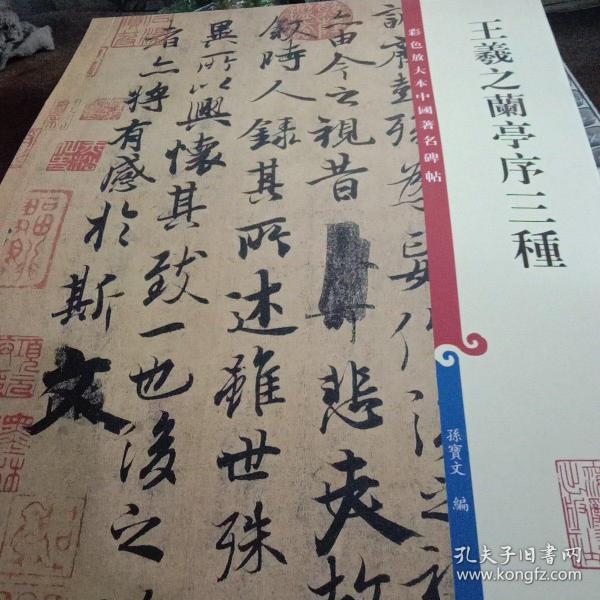 王羲之蘭亭序三種
彩色放大本中國著名碑帖
孫寶文 編
誕齊彭殤為妄作後之視
亦由今之視昔 悲夫故
敘時人錄其所述雖世殊
異所以興懷其致一也後之
者亦將有感於斯文
孔夫子旧书网
www.kongfz.com